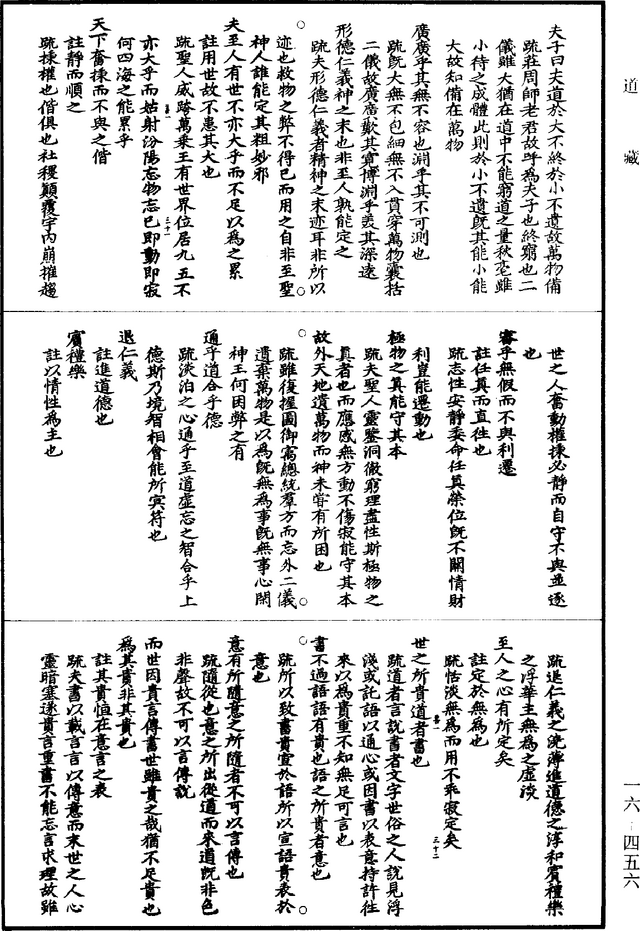 道藏
夫子曰夫道於大不終於小不遺故萬物備
疏莊周師老君故呼為夫子也終窮也二
儀雖大猶在道中不能窮道之量秋毫雖
小待之成體此則於小不遺既其能小能
大故知備在萬物
廣廣乎其無不容也淵乎其不可測也
疏既大無不包細無不入貫穿萬物囊括
二儀故廣廣歎其寬博淵乎美其深遠
形德仁義神之末也非至人孰能定之
疏夫形德仁義者精神之末迹耳非所以
迹也救物之弊不得已而用之自非至聖
神人誰能定其粗妙邪
夫至人有世不亦大乎而不足以為之累
註用世故不患其大也
疏聖人威跨萬乘王有世界位居九五不
亦大乎而姑射汾陽忘物忘己即動即寂
何四海之能累乎
天下奮棅而不與之偕
註靜而順之
疏棅權也偕俱也社稷顛覆宇內崩摧趨
世之人奮動權棅必靜而自守不與並逐
也
審乎無假而不與利遷
註任真而直往也
疏志性安靜委命任真榮位既不關情財
利豈能遷動也
極物之真能守其本
疏夫聖人靈鑒洞徹窮理盡性斯極物之
真者也而應感無方動不傷寂能守其本
故外天地遺萬物而神未嘗有所困也
疏雖復握圖御宇總統羣方而忘外二儀
遺棄萬物是以為既無為事既無事心閑
神王何困弊之有
通乎道合乎德
疏淡泊之心通乎至道虛忘之智合乎上
德斯乃境智相會能所冥符也
退仁義
註進道德也
賓禮樂
註以情性為主也
疏退仁義之澆薄進道德之淳和賓禮樂
之浮華主無為之虛淡
至人之心有所定矣
註定於無為也
疏恬淡無為而用不乖寂定矣
世之所貴道者書也
疏道者言說書者文字世俗之人說見浮
淺或託語以通心或因書以表意持許往
來以為貴重不知無足可言也
書不過語語有貴也語之所貴者意也
疏所以致書貴宣於語所以宣語貴表於
意也
意有所隨意之所隨者不可以言傳也
疏隨從也意之所出從道而來道既非色
非聲故不可以言傳說
而世因貴言傳書世雖貴之哉猶不足貴也
為其貴非其貴也
註其貴恒在意言之表
疏夫書以載言言以傳意而末世之人心
靈暗塞遂貴言重書不能忘言求理故雖
一六－四五六